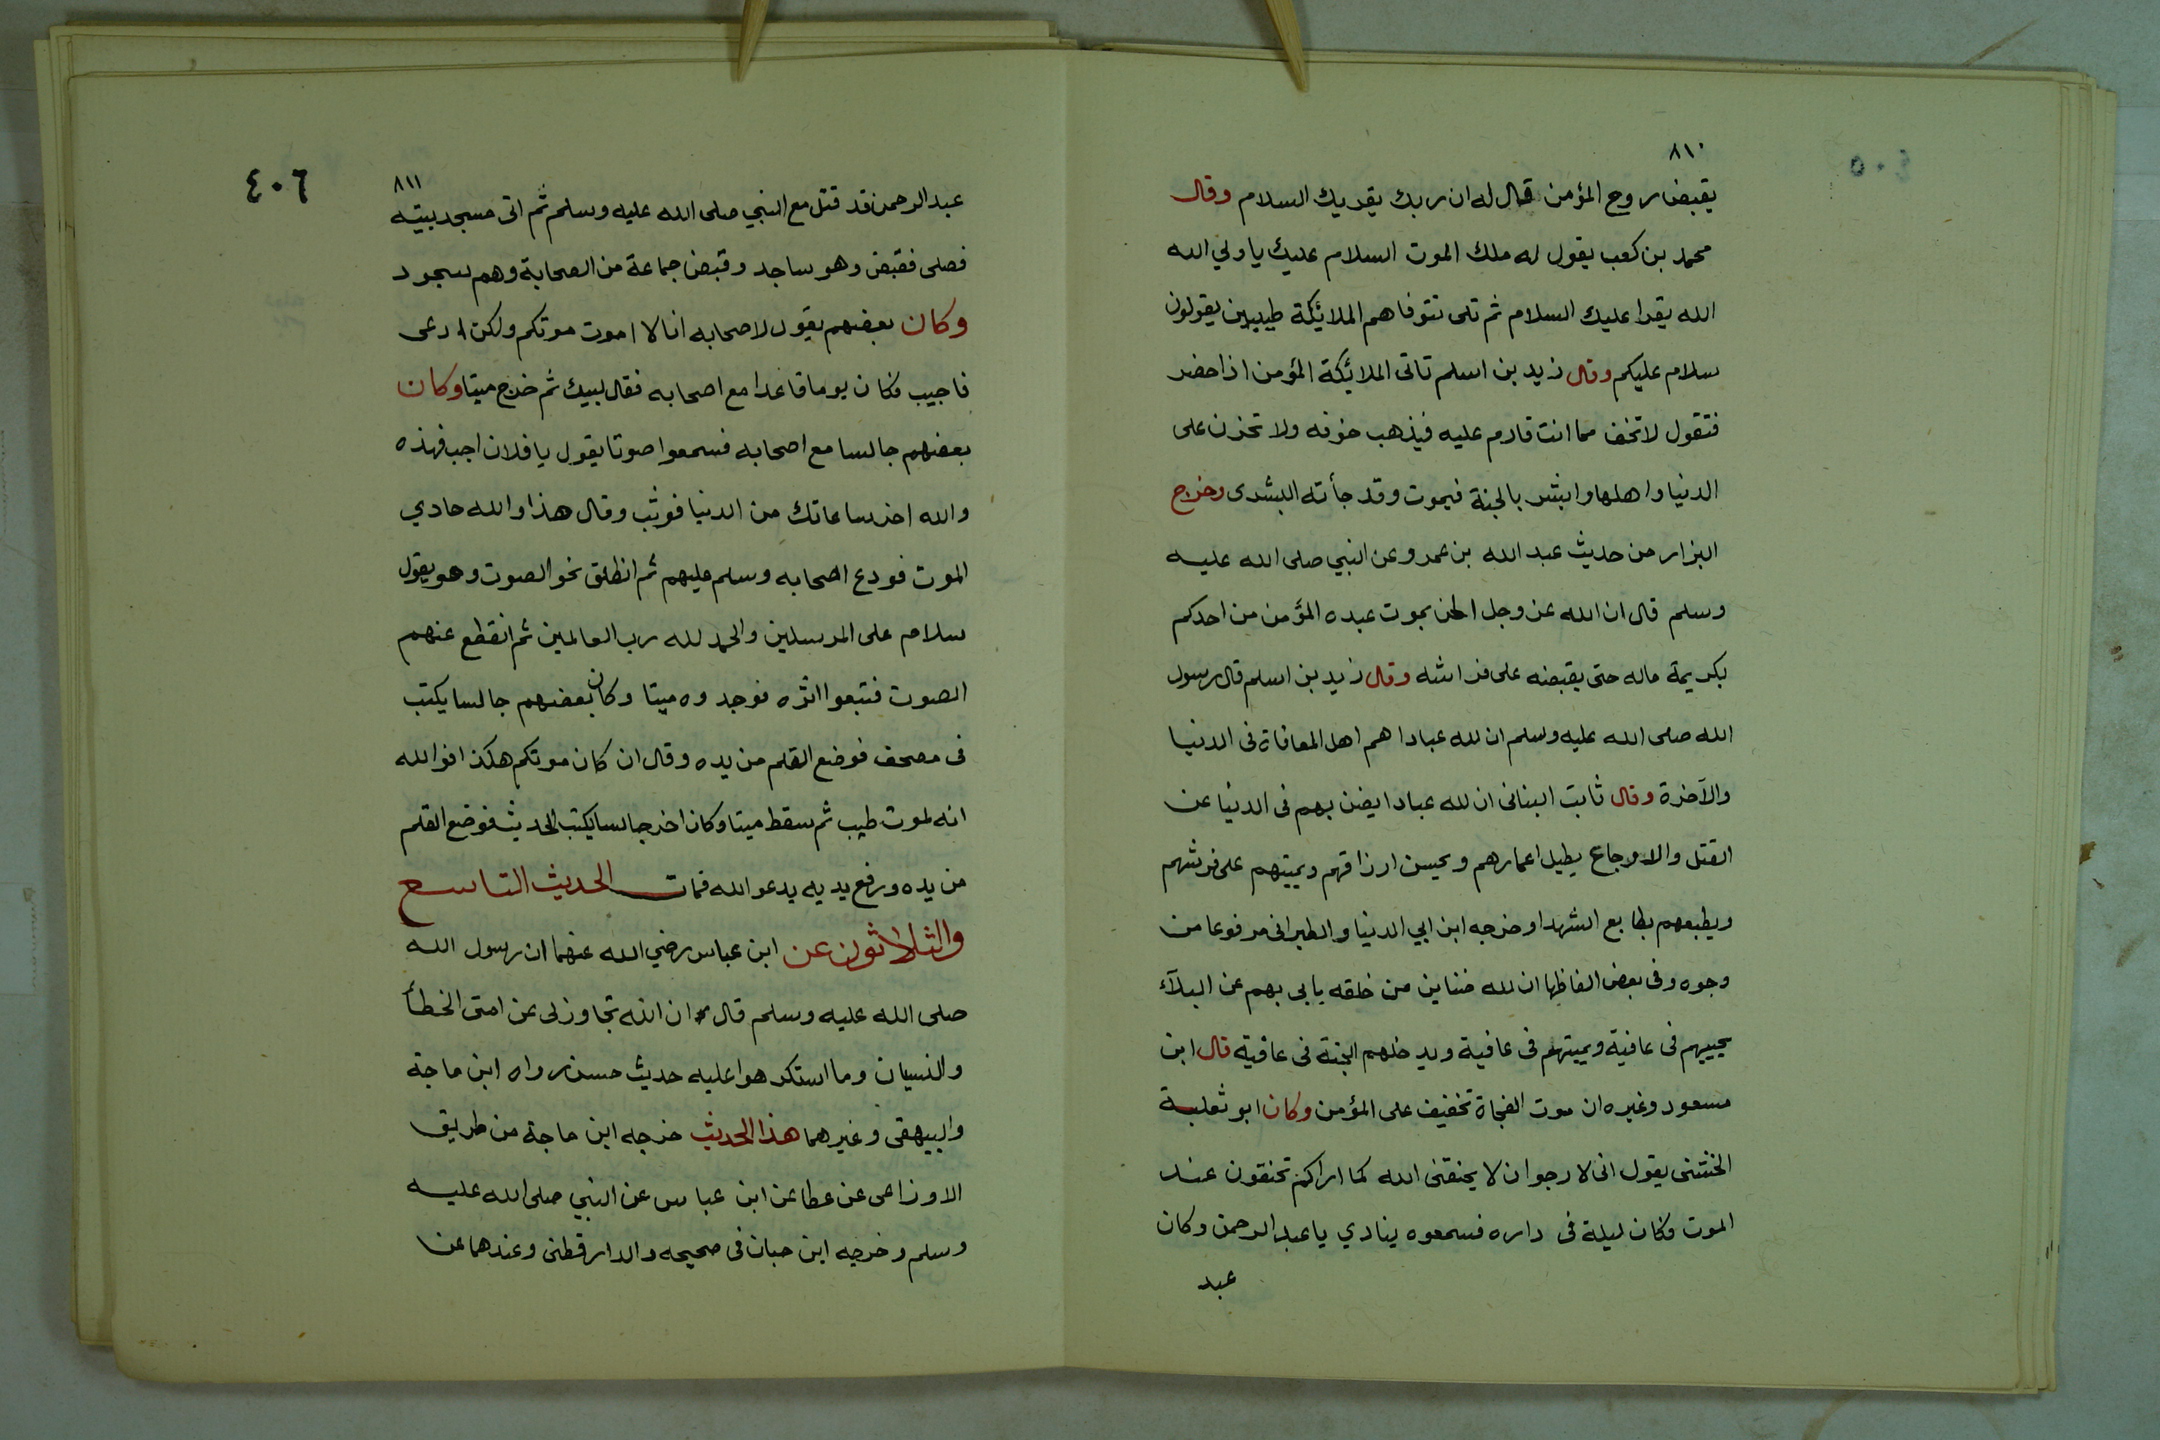 ٨١٠
يقبض روح المؤمن قال له ان ربك يقريك السلام وقال
محمد بن كعب يقول له ملك الموت السلام عليك يا ولي الله
الله يقرا عليك السلام ثم تلى تتوفاهم الملائكة طيبين يقولون
سلام عليكم وقال زيد بن اسلم تاتى الملائكة المؤمن اذا حضر
فتقول لا تخف مما انت قادم عليه فيذهب خوفه ولا تحزن على
الدنيا واهلها وابشر بالجنة فيموت وقد جأته البشرى وخرج
البزار من حديث عبد الله بن عمرو عن النبي صلى الله عليه
وسلم قال ان الله عز وجل اظن بموت عبده المؤمن من احدكم
بكريمة ماله حتى يقبضه على فراشه وقال زيد بن اسلم قال رسول
الله صلى الله عليه وسلم ان لله عبادا هم اهل المعافاة فى الدنيا
والآخرة وقال ثابت البنانى ان لله عبادا يضن بهم فى الدنيا عن
القتل والاوجاع يطيل اعمارهم ويحسن ارزاقهم ويميتهم على فرشهم
ويطبعهم بطابع الشهدا وخرجه ابن ابي الدنيا والطبرانى مرفوعا من
وجوه وفى بعض الفاظها ان لله ضناين من خلقه يابى بهم عن البلآء
يحييهم فى عافية ويميتهم فى عافية ويدخلهم الجنة فى عافية قال ابن
مسعود وغيره ان موت الفجاة تخفيف على المؤمن وكان ابو ثعلبة
الخشنى يقول انى لارجوا ن لا يخنقنى الله كما اراكم تخنقون عند
الموت فكان ليلة فى داره فسمعوه ينادي يا عبد الرحمن وكان
عبد
٤٠٦
٨١١
عبد الرحمن قد قتل مع النبي صلى الله عليه وسلم ثم اتى مسجد بيته
فصلى فقبض وهو ساجد وقبض جماعة من الصحابة وهم سجود
وكان بعضهم يقول لاصحابه انا لا اموت موتكم ولكن ادعى
فاجيب فكان يوما قاعدا مع اصحابه فقال لبيك ثم خرج ميتا وكان
بعضهم جالسا مع اصحابه فسمعوا صوتا يقول يا فلان اجب فهذه
والله اخر ساعاتك من الدنيا فوثب وقال هذا والله حادي
الموت فودع اصحابه وسلم عليهم ثم انطلق نحو الصوت وهو يقول
سلام على المرسلين والحمد لله رب العالمين ثم انقطع عنهم
الصوت فتبعوا اثره فوجدوه ميتا وكان بعضهم جالسا يكتب
فى مصحف فوضع القلم من يده وقال ان كان موتكم هكذا فوالله
انه لموت طيب ثم سقط ميتا وكان اخر جالسا يكتب الحديث فوضع القلم
من يده ورفع يديه يدعو الله فمات الحديث التاسع
والثلاثون عن ابن عباس رضي الله عنهما ان رسول الله
صلى الله عليه وسلم قال ان الله تجاوز لى عن امتى الخطأ
والنسيان وما استكرهوا عليه حديث حسن رواه ابن ماجة
والبيهقى وغيرهما هذا الحديث خرجه ابن ماجة من طريق
الاوزاعى عن عطا عن ابن عباس عن النبي صلى الله عليه
وسلم وخرجه ابن حبان فى صحيحه والدارقطنى وعندهما عن